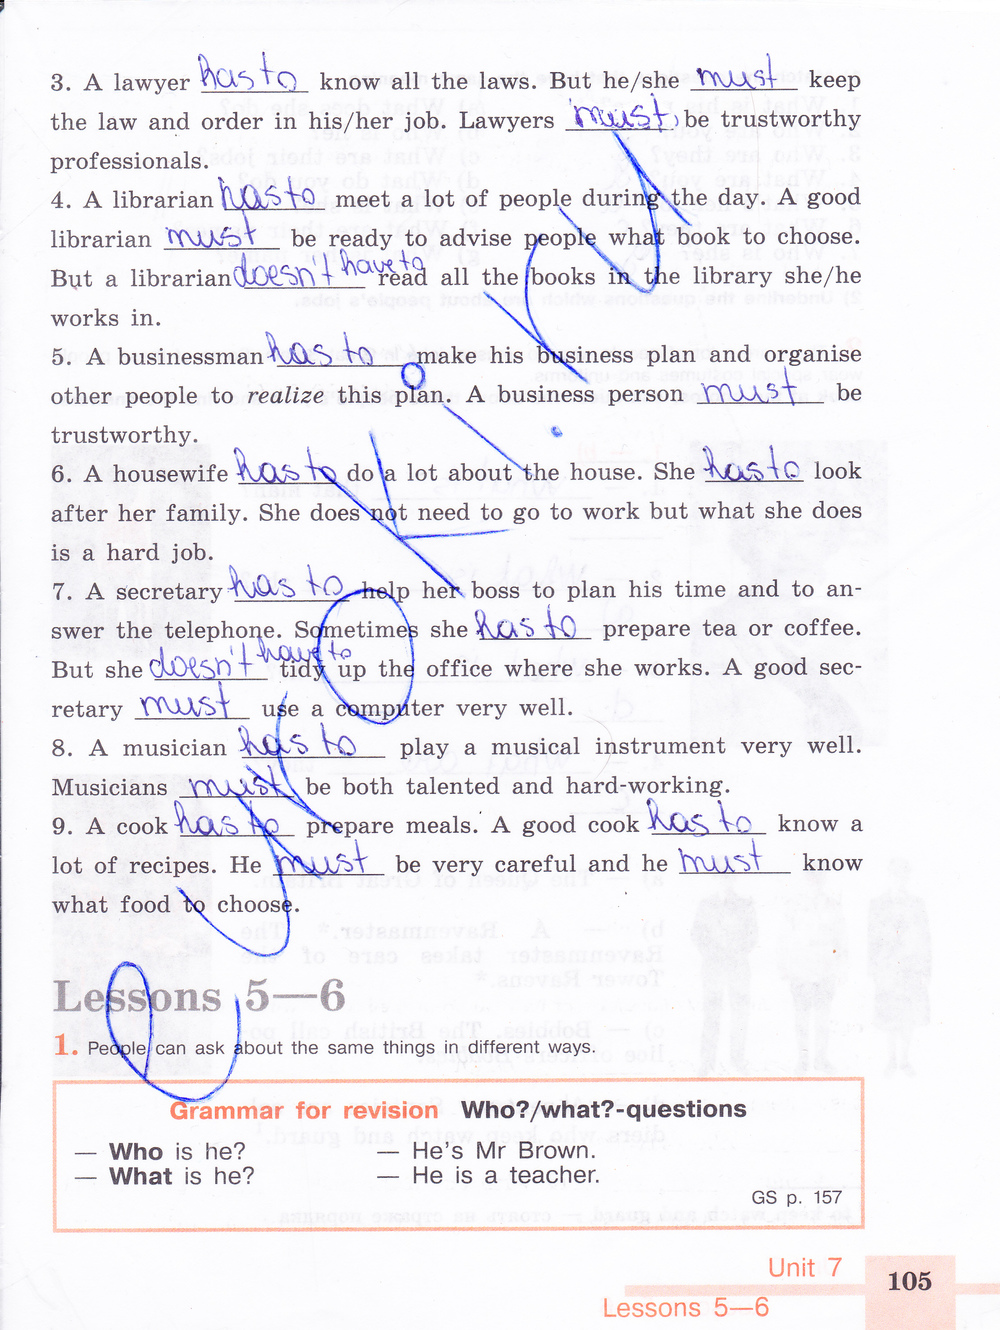 3. A lawyer has to know all the laws. But he/she must keep
the law and order in his/her job. Lawyers must be trustworthy
professionals.
4. A librarian has to meet a lot of people during the day. A good
librarian must be ready to advise people what book to choose.
But a librarian doesn't have to read all the books in the library she/he
works in.
5. A businessman has to make his business plan and organise
other people to realize this plan. A business person must be
trustworthy.
6. A housewife has to do a lot about the house. She has to look
after her family. She does not need to go to work but what she does
is a hard job.
7. A secretary has to help her boss to plan his time and to an-
swer the telephone. Sometimes she has to prepare tea or coffee.
But she doesn't have to tidy up the office where she works. A good sec-
retary must use a computer very well.
8. A musician has to play a musical instrument very well.
Musicians must be both talented and hard-working.
9. A cook has to prepare meals. A good cook has to know a
lot of recipes. He must be very careful and he must know
what food to choose.
Lessons 5—6
1. People can ask about the same things in different ways.
Grammar for revision Who?/what?-questions
— Who is he? — He's Mr Brown.
— What is he? — He is a teacher.
GS p. 157
Unit 7
105
Lessons 5—6